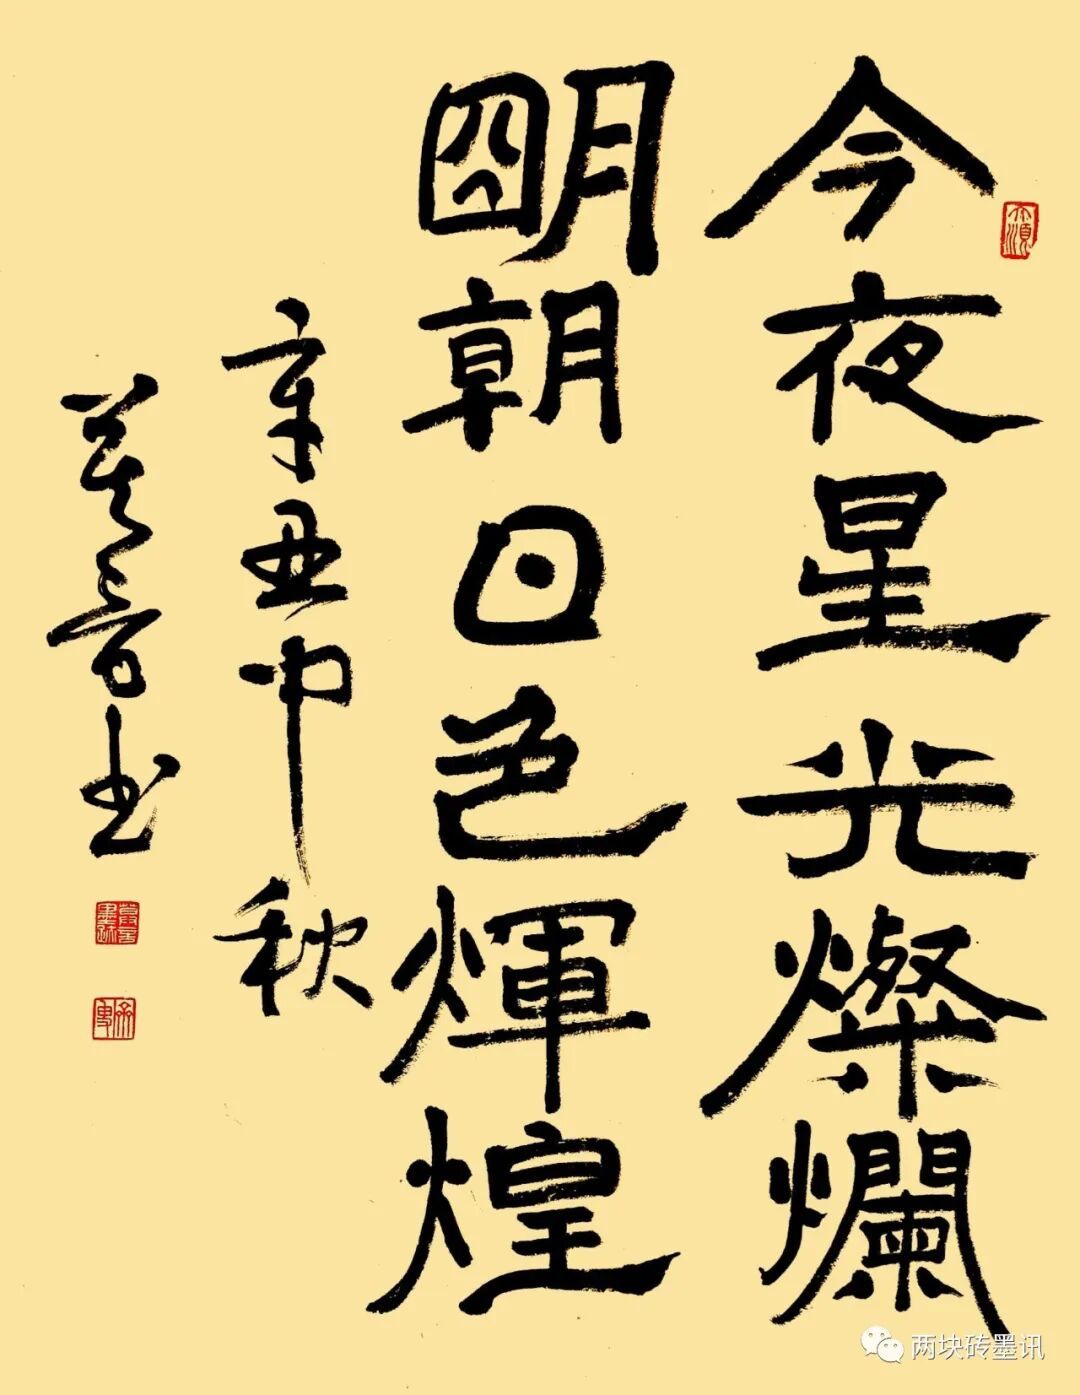 今夜星光燦爛
明朝日色煇煌
辛丑中秋
两块砖墨讯